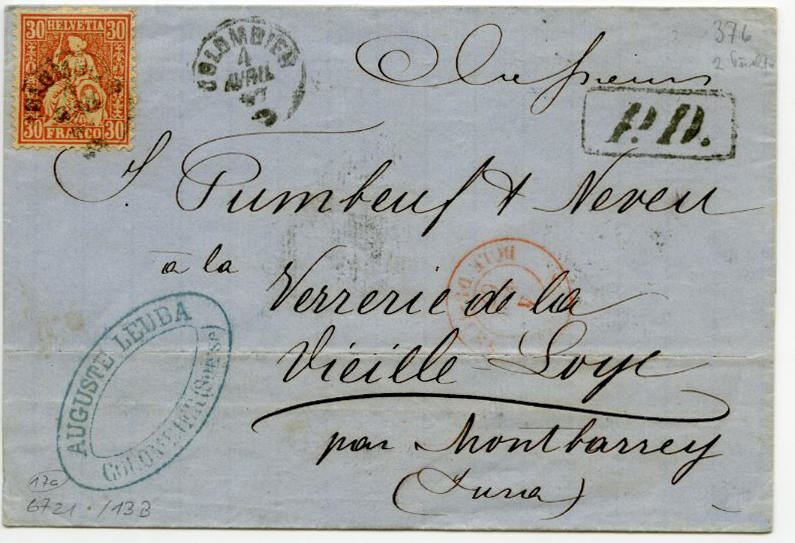 30 HELVETIA 30
30 FRANCO 30
COLOMBIER
4
AVRIL
67
376
2
Messieurs
P.D.
S. Pumbeuf & Neveu
à la
Verrerie de la
Vieille Loye
par Montbarrey
(Jura)
AUGUSTE LEUBA
COLOMBIER (Suisse)
17a
6721 . /13B